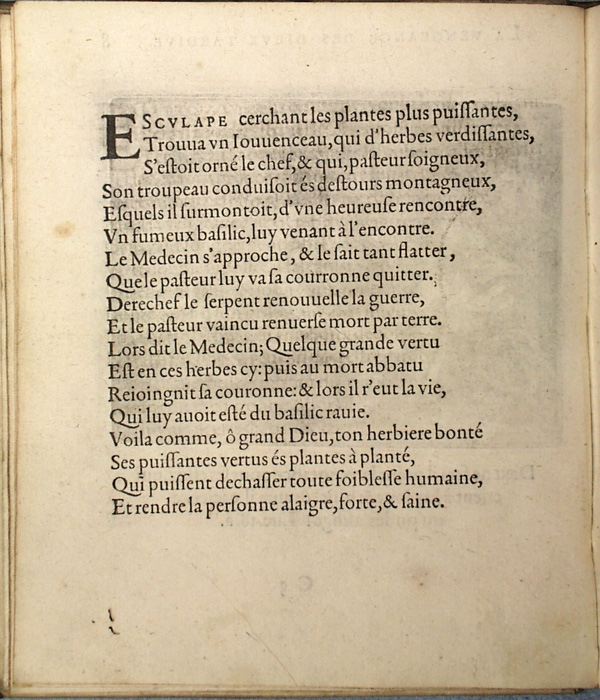 ESCVLAPE cerchant les plantes plus puiſſantes,
Trouua vn Iouuenceau, qui d'herbes verdiſſantes,
S'eſtoit orné le chef, & qui, paſteur ſoigneux,
Son troupeau conduiſoit és deſtours montagneux,
Eſquels il ſurmontoit, d'vne heureuſe rencontre,
Vn fumeux baſilic, luy venant à l'encontre.
Le Medecin s'approche, & le fait tant flatter,
Que le paſteur luy va ſa courronne quitter.
Derechef le ſerpent renouuelle la guerre,
Et le paſteur vaincu renuerſe mort par terre.
Lors dit le Medecin; Quelque grande vertu
Eſt en ces herbes cy: puis au mort abbatu
Reioingnit ſa couronne: & lors il r'eut la vie,
Qui luy auoit eſté du baſilic rauie.
Voila comme, ô grand Dieu, ton herbiere bonté
Ses puiſſantes vertus és plantes à planté,
Qui puiſſent dechaſſer toute foibleſſe humaine,
Et rendre la perſonne alaigre, forte, & ſaine.